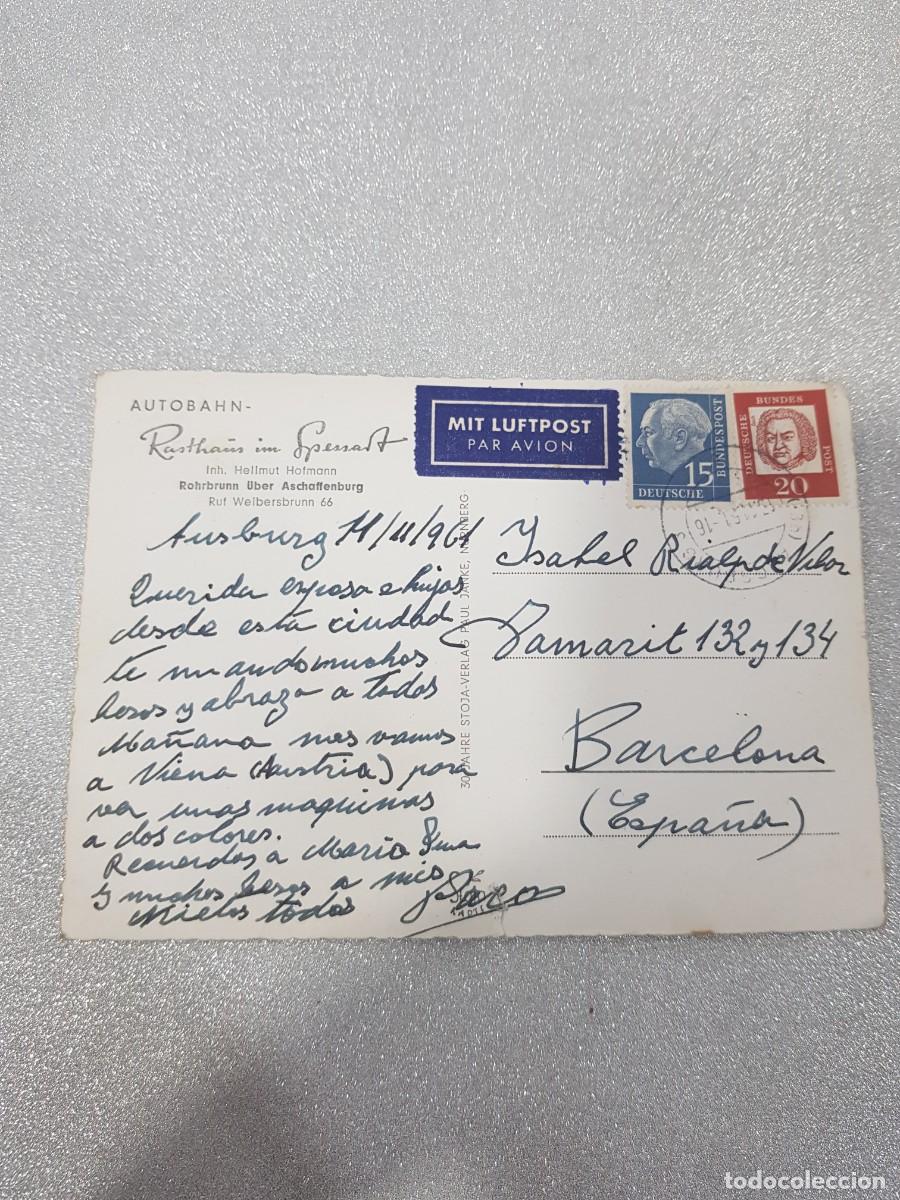 AUTOBAHN-
Rasthaus im Spessart
Inh. Hellmut Hofmann
Rohrbrunn Über Aschaffenburg
Ruf Weibersbrunn 66
MIT LUFTPOST
PAR AVION
15
DEUTSCHE
BUNDESPOST
DEUTSCHE
BUNDES
POST
20
Ausburg 11/11/961
Querida esposa e hijos
desde esta ciudad
te mando muchos
besos y abrazo a todos
Mañana nos vamos
a Viena (Austria) para
ver unas maquinas
a dos colores.
Recuerdos a Maria
y muchos besos a mis
Nietos todos
Paco
30 JAHRE STOJA-VERLAG PAUL JANKE, NÜRNBERG
Isabel Rialp de Vilar
Tamarit 132 y 134
Barcelona
(España)
todocoleccion